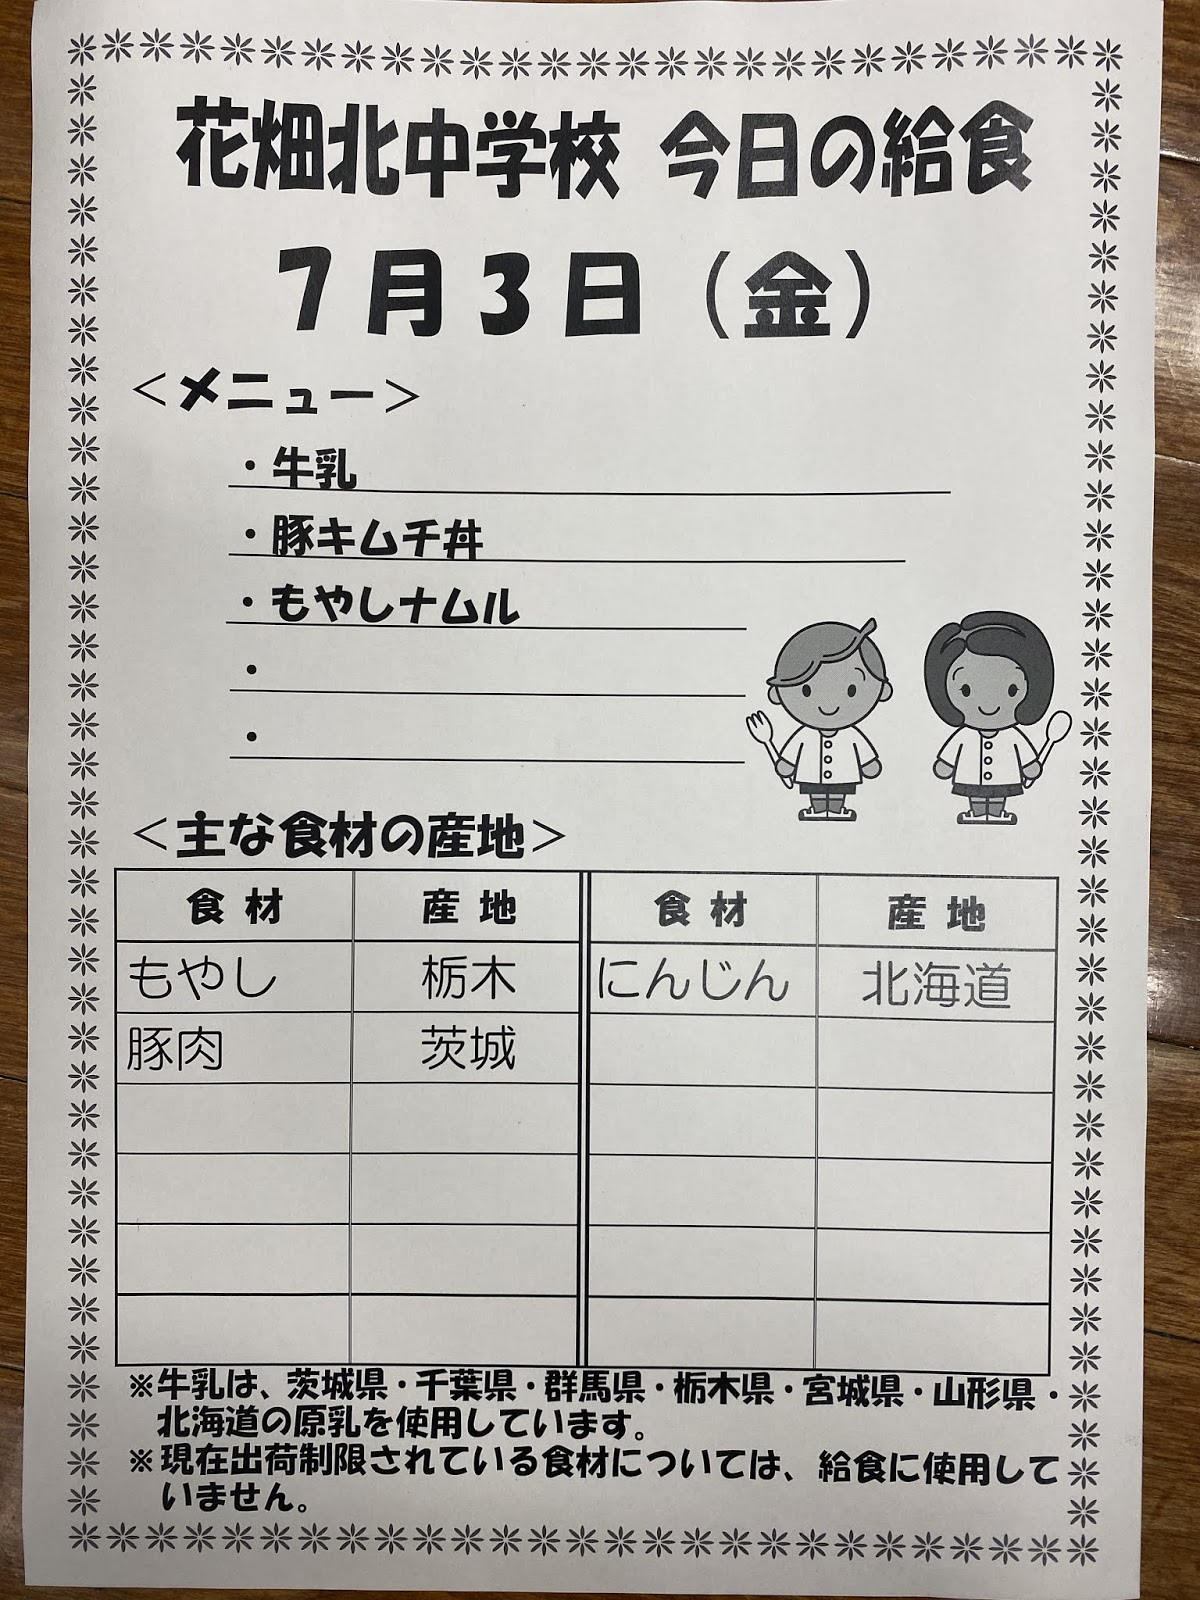 花畑北中学校 今日の給食
７月３日（金）
＜メニュー＞
・牛乳
・豚キムチ丼
・もやしナムル
・
・
＜主な食材の産地＞
食材 産地 食材 産地
もやし 栃木 にんじん 北海道
豚肉 茨城
※牛乳は、茨城県・千葉県・群馬県・栃木県・宮城県・山形県・
北海道の原乳を使用しています。
※現在出荷制限されている食材については、給食に使用して
いません。